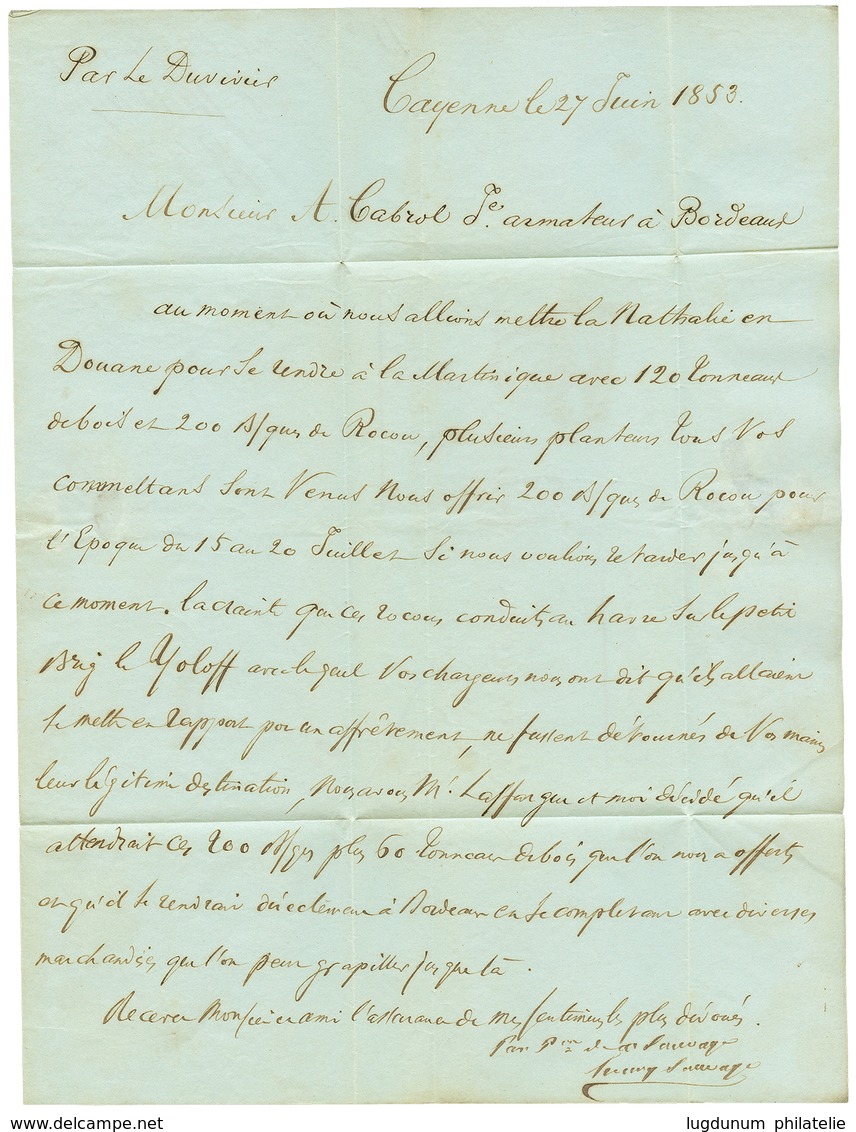 Par Le Duvivier
Cayenne le 27 Juin 1853.
Monsieur A. Cabrol Je. armateur à Bordeaux
au moment où nous allions mettre la Nathalie en
Douane pour se rendre à la Martinique avec 120 tonneaux
de bois et 200 B/ques de Rocou, plusieurs planteurs tous Vos
commettans sont Venus nous offrir 200 B/ques de Rocou pour
l'Epoque du 15 au 20 Juillet si nous voulions retarder jusqu'à
ce moment. la crainte que ces rocous conduits au havre sur le petit
Brig le Yoloff avec lequel Vos chargeurs nous ont dit qu'ils allaient
se mettre en rapport por un affrêtement, ne fussent détournés de Vos mains
leur légitime destination, Nous avons Mr. Laffargue et moi décidé qu'il
attendrait ces 200 B/ques plus 60 tonneaux de bois que l'on nous a offerts
et qu'il se rendrait directement à Bordeaux en se completant avec diverses
marchandises que l'on peut grapiller jusque là.
Recevez Monsieur et ami l'assurance de mes sentiments les plus dévoués.
Par Pon de Sauvage
Sauvage
lugdunum philatelie